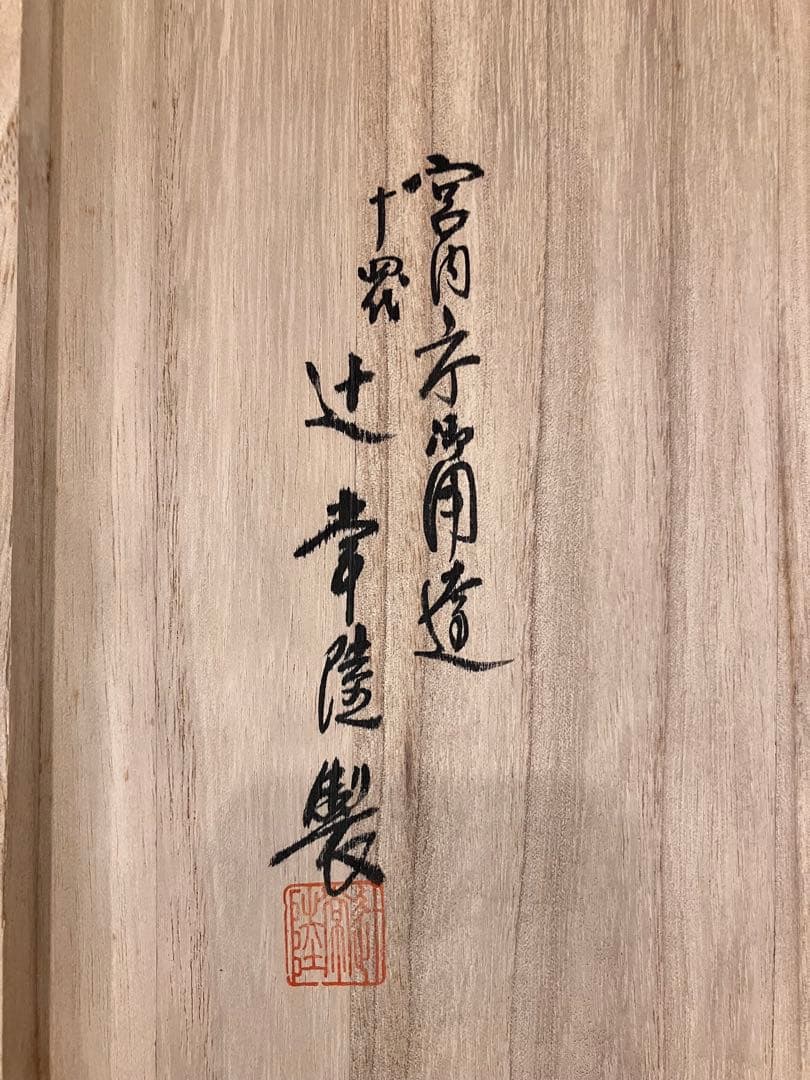 宮内庁御用達
十四代
辻 常陸 製
辻常陸